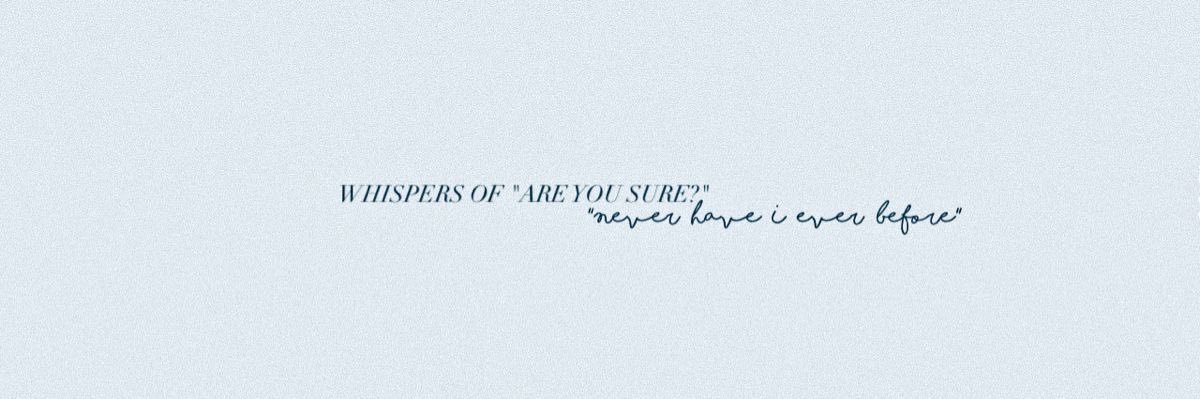 WHISPERS OF "ARE YOU SURE?"
"never have i ever before"